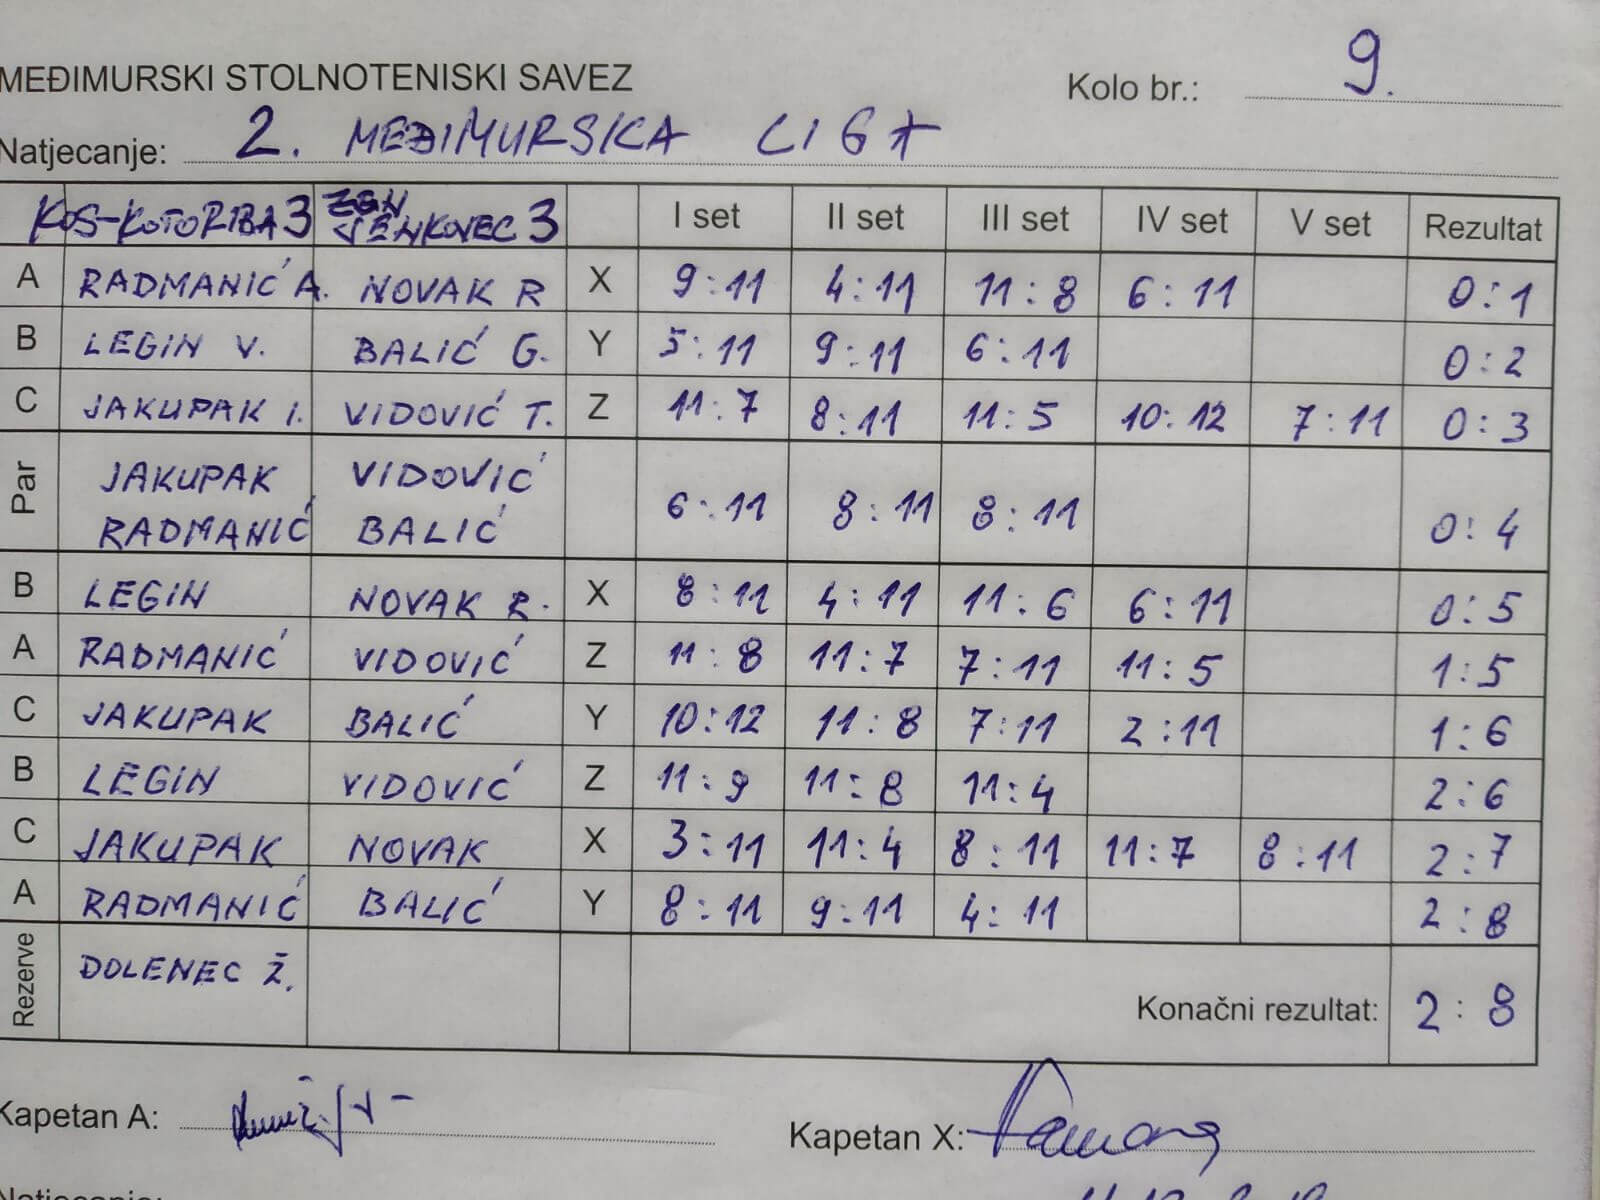 MEĐIMURSKI STOLNOTENISKI SAVEZ Kolo br.: 9.
Natjecanje: 2. MEĐIMURSKA LIGA
KOS-KOTORIBA 3 JENKOVEC 3 I set II set III set IV set V set Rezultat
A RADMANIĆ A. NOVAK R X 9:11 4:11 11:8 6:11 0:1
B LEGIN V. BALIĆ G. Y 5:11 9:11 6:11 0:2
C JAKUPAK I. VIDOVIĆ T. Z 11:7 8:11 11:5 10:12 7:11 0:3
Par JAKUPAK VIDOVIĆ
RADMANIĆ BALIĆ 6:11 8:11 8:11 0:4
B LEGIN NOVAK R. X 8:11 4:11 11:6 6:11 0:5
A RADMANIĆ VIDOVIĆ Z 11:8 11:7 7:11 11:5 1:5
C JAKUPAK BALIĆ Y 10:12 11:8 7:11 2:11 1:6
B LEGIN VIDOVIĆ Z 11:9 11:8 11:4 2:6
C JAKUPAK NOVAK X 3:11 11:4 8:11 11:7 8:11 2:7
A RADMANIĆ BALIĆ Y 8:11 9:11 4:11 2:8
Rezerve DOLENEC Ž. Konačni rezultat: 2:8
Kapetan A: Kapetan X:
Natjecanje: